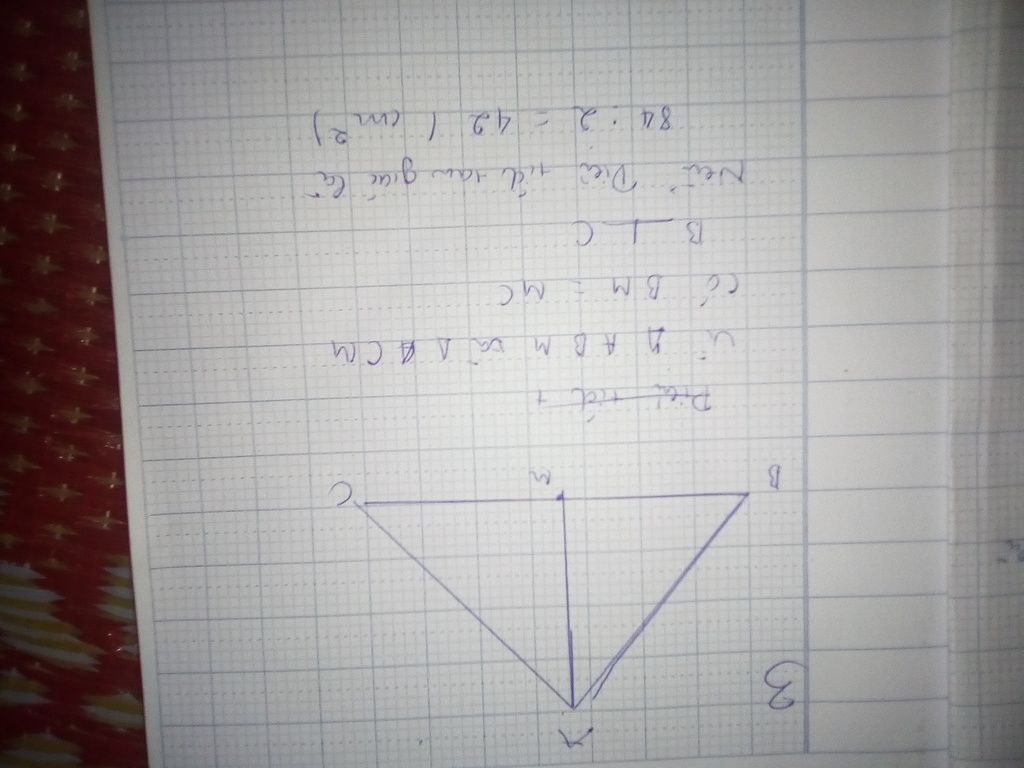 3
A
B M C
Diện tích t
Vì Δ ABM và Δ ACM
Có BM = MC
B C
Nên Diện tích tam giác là
84 : 2 = 42 ( cm²)